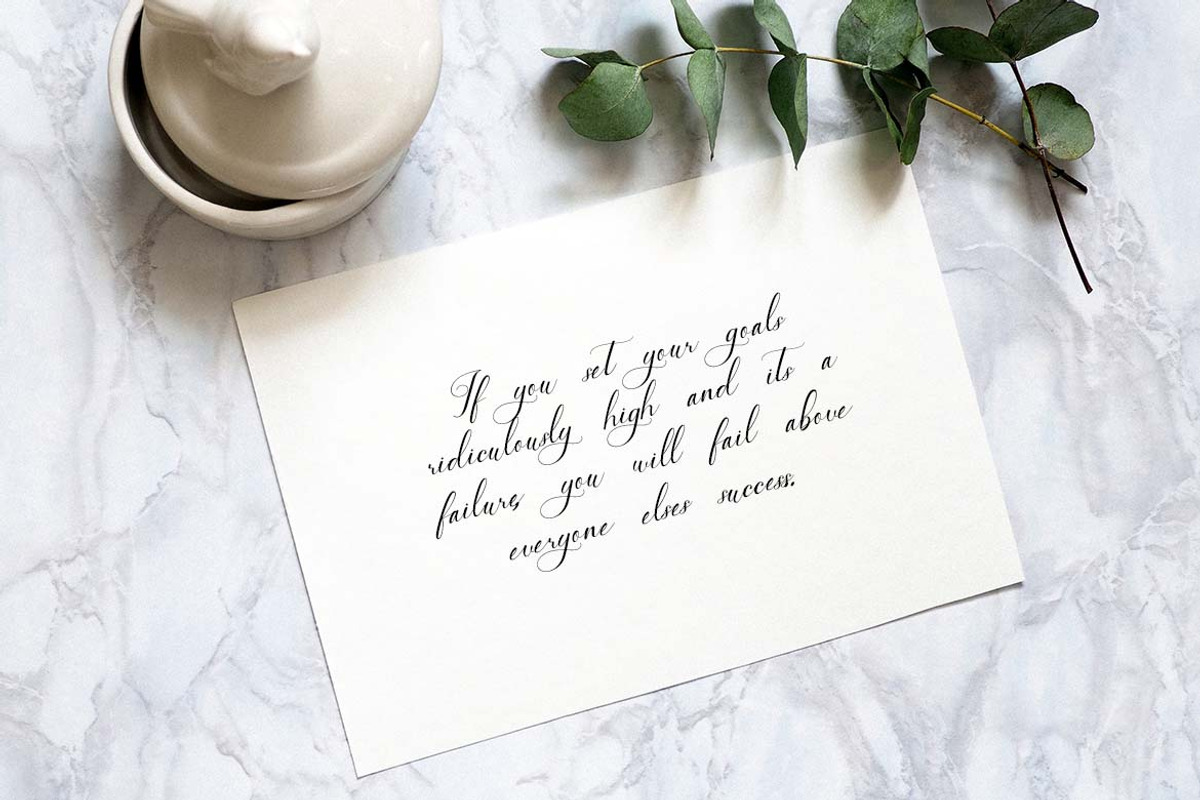 If you set your goals
ridiculously high and its a
failure, you will fail above
everyone elses success.